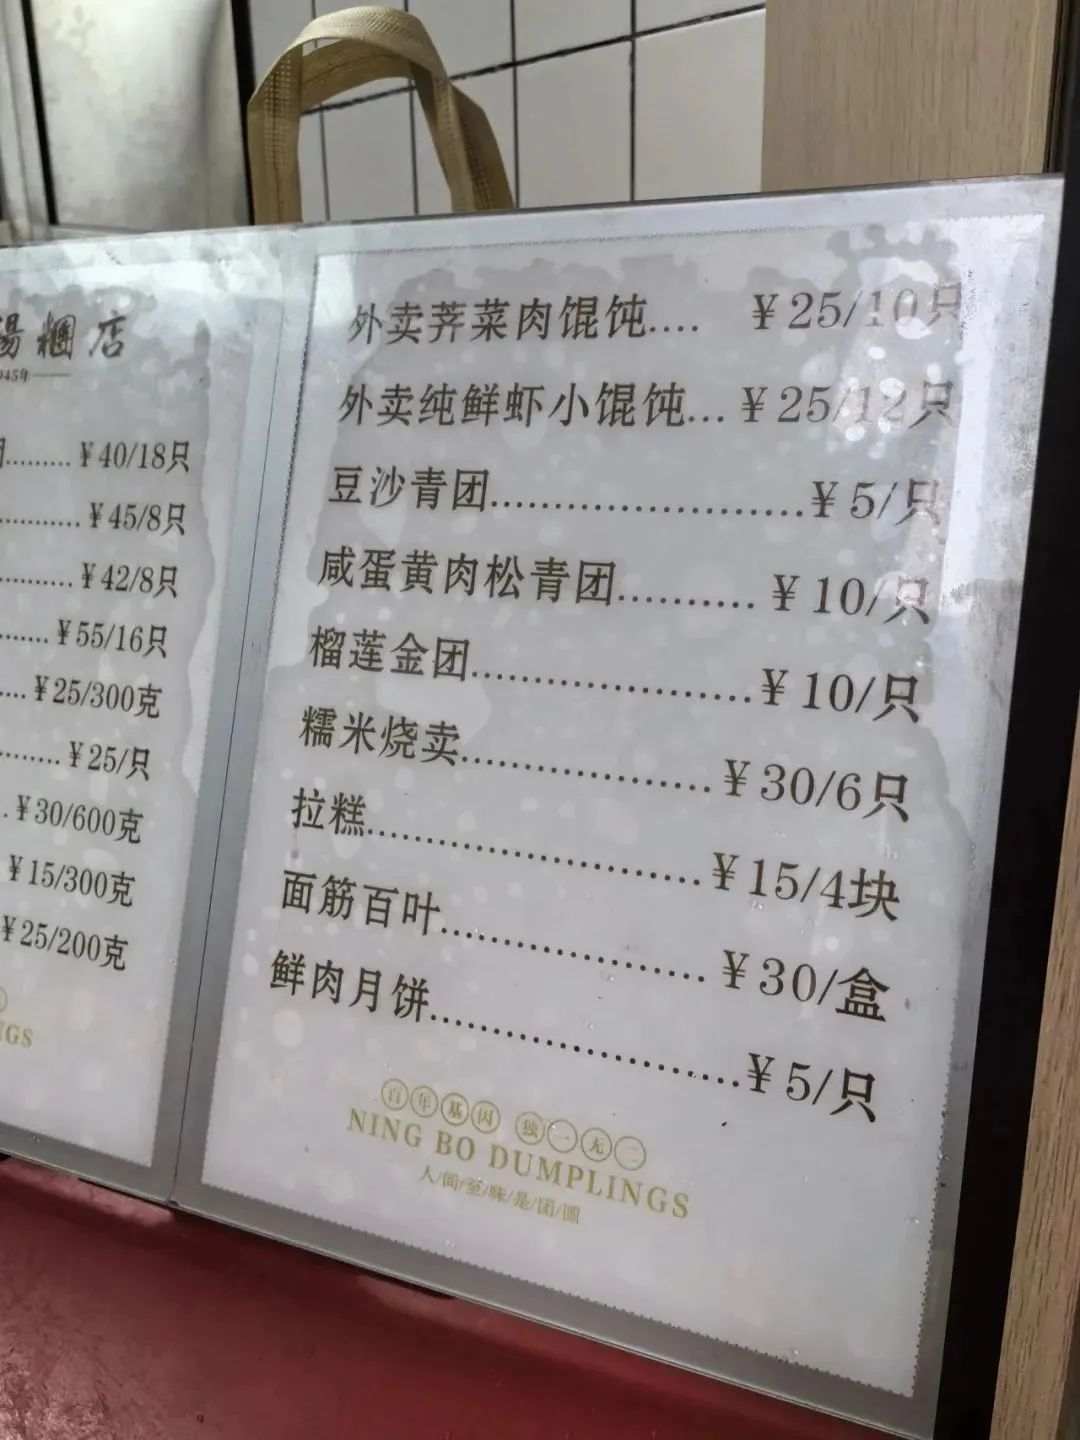 汤糰店
945年
¥40/18只
¥45/8只
¥42/8只
¥55/16只
¥25/300克
¥25/只
¥30/600克
¥15/300克
¥25/200克
NGS
外卖荠菜肉馄饨.... ¥25/10只
外卖纯鲜虾小馄饨... ¥25/12只
豆沙青团........................ ¥5/只
咸蛋黄肉松青团.......... ¥10/只
榴莲金团.................... ¥10/只
糯米烧卖.................... ¥30/6只
拉糕.......................... ¥15/4块
面筋百叶..................... ¥30/盒
鲜肉月饼........................ ¥5/只
百年基因 独一无二
NING BO DUMPLINGS
人/间/至/味/是/团/圆